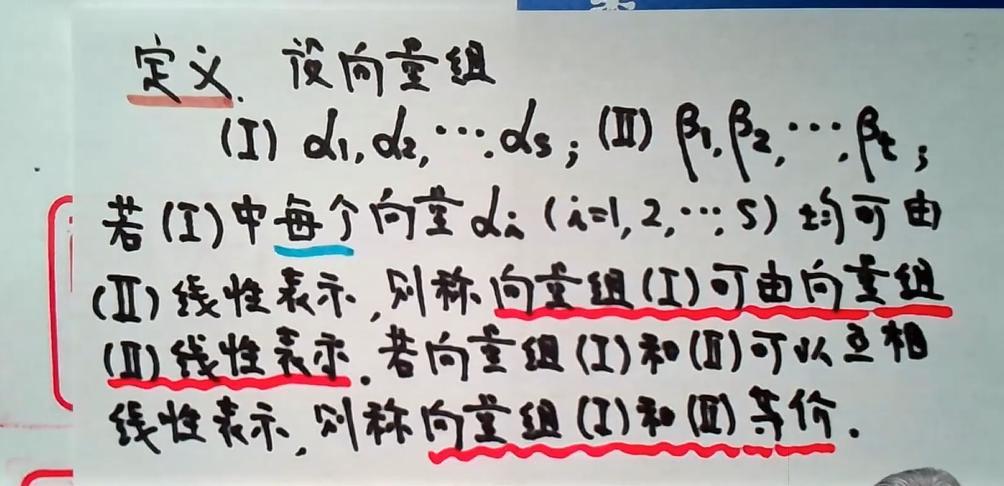 定义. 设向量组
(I) α₁, α₂, ⋯, αₛ; (II) β₁, β₂, ⋯, βₜ;
若(I)中每个向量αᵢ(i=1,2,⋯,s)均可由
(II)线性表示,则称向量组(I)可由向量组
(II)线性表示.若向量组(I)和(II)可以互相
线性表示,则称向量组(I)和(II)等价.